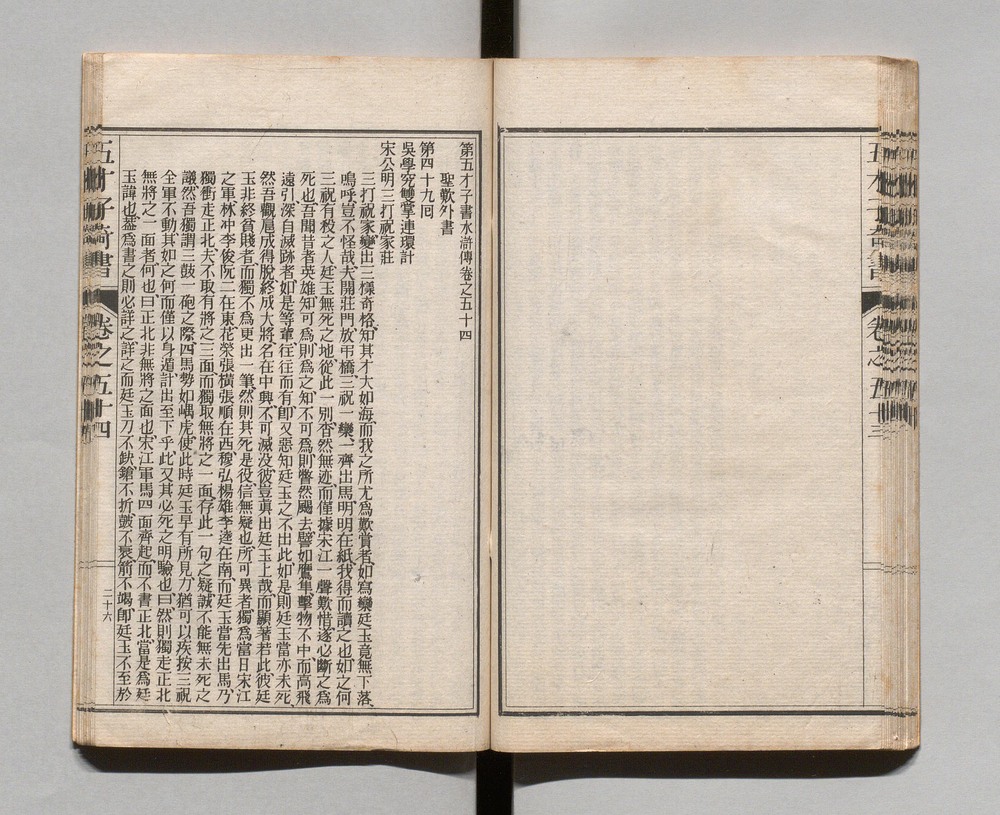 卷之五十三
第五才子書水滸傳卷之五十四
聖歎外書
第四十九回
吳學究雙掌連環計
宋公明三打祝家莊
三打祝家變出三樣奇格知其才大如海而我之所尤爲歎賞者如寫欒廷玉竟無下落
嗚呼豈不怪哉夫開莊門放弔橋三祝一欒一齊出馬明明在紙我得而讀之也如之何
三祝有殺之人廷玉無死之地從此一別杳然無迹而僅據宋江一聲歎惜遂必斷之爲
死也吾聞昔者英雄知可爲則爲之知不可爲則瞥然颺去譬如鷹隼擊物不中而高飛
遠引深自滅跡者如是等輩往往而有卽又惡知廷玉之不出此如是則廷玉當亦未死
然吾觀扈成得脫終成大將名在中興不可滅没彼豈眞出廷玉上哉而顯著若此彼廷
玉非終貧賤者而獨不爲更出一筆然則其死是役信無疑也所可異者獨爲當日宋江
之軍林冲李俊阮二在東花榮張橫張順在西穆弘楊雄李逵在南而廷玉當先出馬乃
獨衝走正北夫不取有將之三面而獨取無將之一面存此一句之疑誠不能無未死之
議然吾獨謂三鼓一砲之際四馬勢如嵎虎使此時廷玉早有所見力猶可以疾按三祝
全軍不動其如之何而僅以身遁計出至下乎此又其必死之明驗也曰然則獨走正北
無將之一面者何也曰正北非無將之面也宋江軍馬四面齊起而不書正北當是爲廷
玉諱也蓋爲書之則必詳之詳之而廷玉刀不缺鎗不折鼓不衰箭不竭卽廷玉不至於
五才子奇書
卷之五十四
二十六